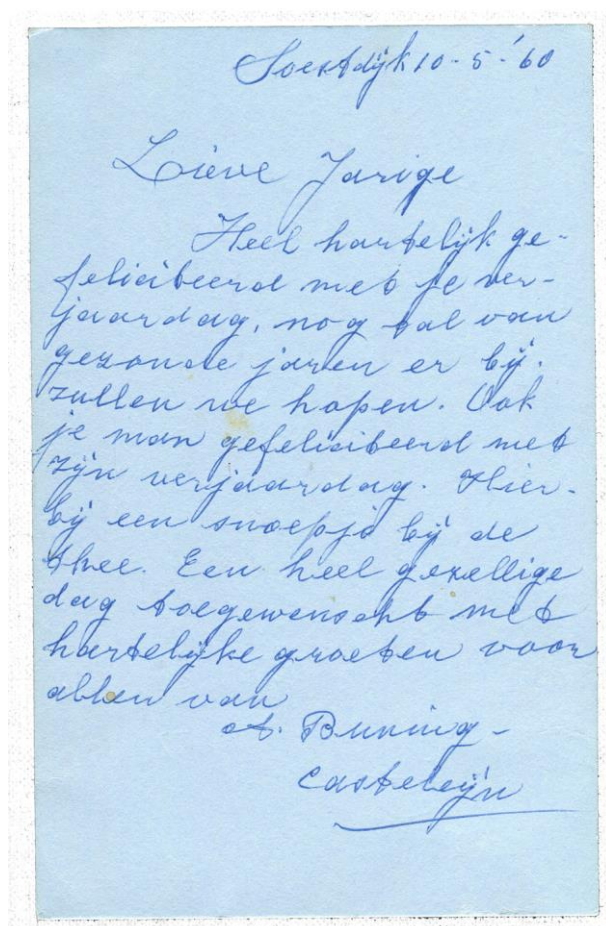 Soestdijk 10-5-'60
Lieve Jarige
Heel hartelijk ge-
feliciteerd met je ver-
jaardag, nog tal van
gezonde jaren er bij.
zullen we hopen. Ook
je man gefeliciteerd met
zijn verjaardag. Hier-
bij een snoepje bij de
thee. Een heel gezellige
dag toegewenscht met
hartelijke groeten voor
allen van
A. Buning-
Casteleijn